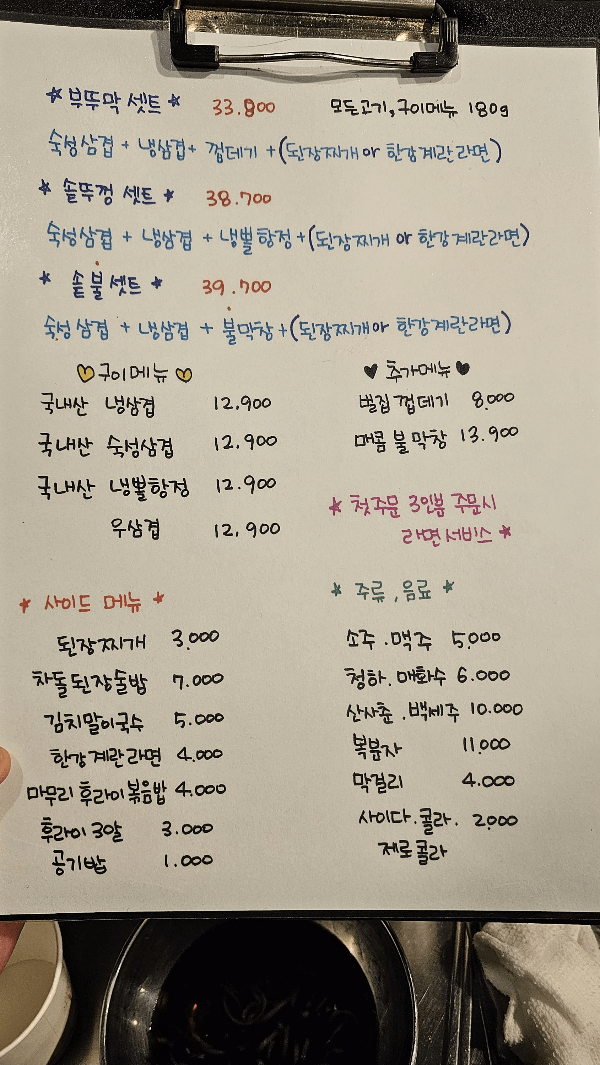 ★ 부뚜막 셋트 ★ 33.900 모든고기,구이메뉴 180g
숙성삼겹 + 냉삼겹 + 껍데기 + (된장찌개 or 한강계란라면)
★ 솥뚜껑 셋트 ★ 38.700
숙성삼겹 + 냉삼겹 + 냉뽈항정 + (된장찌개 or 한강계란라면)
★ 솥불셋트 ★ 39.700
숙성삼겹 + 냉삼겹 + 불막창 + (된장찌개 or 한강계란라면)
♡ 구이메뉴 ♡
국내산 냉삼겹 12.900
국내산 숙성삼겹 12.900
국내산 냉뽈항정 12.900
우삼겹 12,900
♥ 추가메뉴 ♥
벌집껍데기 8.000
매콤 불막창 13.900
★ 첫주문 3인분 주문시
라면서비스 ★
★ 사이드 메뉴 ★
된장찌개 3.000
차돌된장술밥 7.000
김치말이국수 5.000
한강계란라면 4.000
마무리 후라이볶음밥 4.000
후라이 3알 3.000
공기밥 1.000
★ 주류, 음료 ★
소주.맥주 5.000
청하.매화수 6.000
산사춘.백세주 10.000
복분자 11.000
막걸리 4.000
사이다.콜라. 2.000
제로콜라